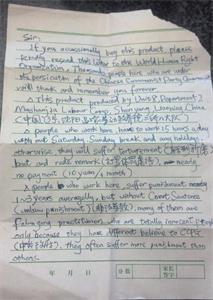 Sir:
If you occasionally buy this product, please
kindly resend this letter to the World Human Right
Organization. Thousands people here who are under
the persicution of the Chinese Communist Party Government
will thank and remember you forever.
This product produced by Unit 8, Department 2,
Masanjia Labour Camp, Shenyang, Liaoning, China
(中国,辽宁,沈阳,
People who work here, have to work 15 hours a day
with out Saturday, Sunday break and any holidays,
otherwise, they will suffer
but and rude remark nearly
no payment (10 yuan/month)
People who work here, suffer punishment nearly
1~3 years averagelly, but without Court Sentence
many of them are
Falun gong practitioner, who are totally innocent people
only because they have different believe to CCPG
they often suffer more punishment than
others.
年 月 日